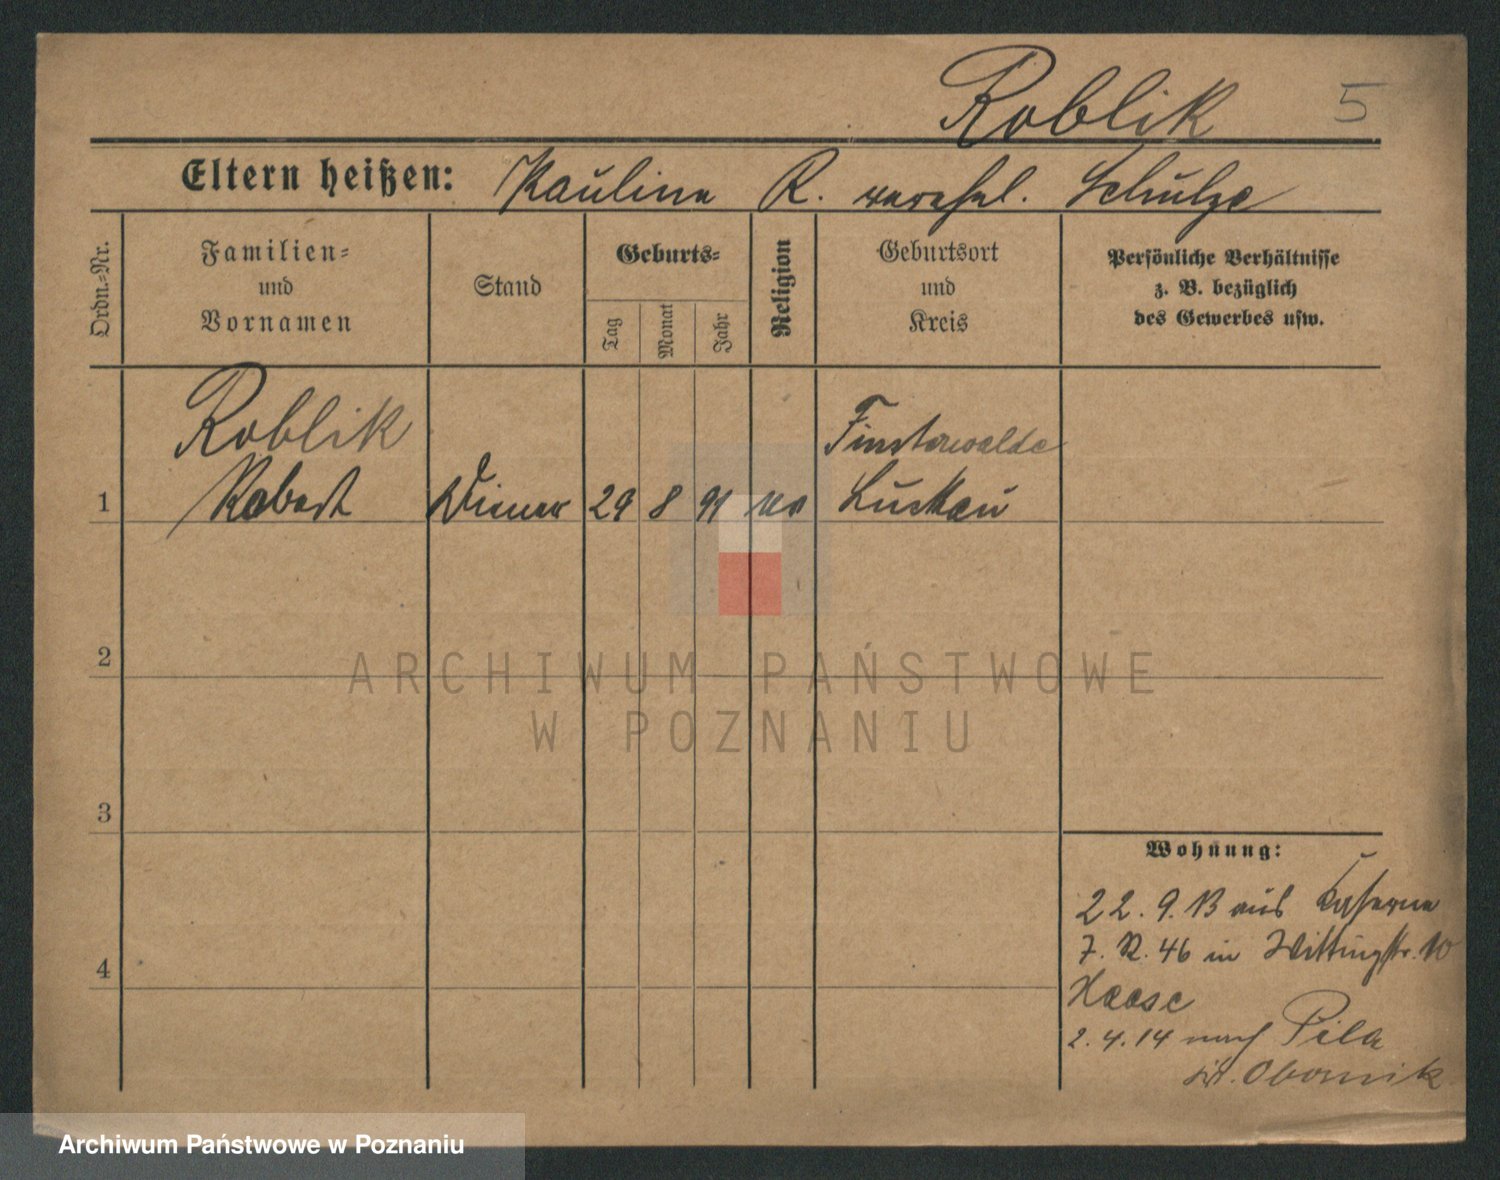 Roblik 5
Eltern heißen: Pauline R. verehel. Schulze
Ordn.=Nr.
Familien=
und
Vornamen
Stand
Geburts=
Tag
Monat
Jahr
Religion
Geburtsort
und
Kreis
Persönliche Verhältnisse
z. B. bezüglich
des Gewerbes usw.
Roblik
Finsterwalde
1 Robert Diener 29 8 91 Luckau
2
ARCHIWUM PAŃSTWOWE
W POZNANIU
3
Wohnung:
22. 9. 13 aus Kaserne
7. R. 46 in Wittingstr. 10
Haase
4
2. 4. 14 nach Pila
Kr. Obornik
Archiwum Państwowe w Poznaniu